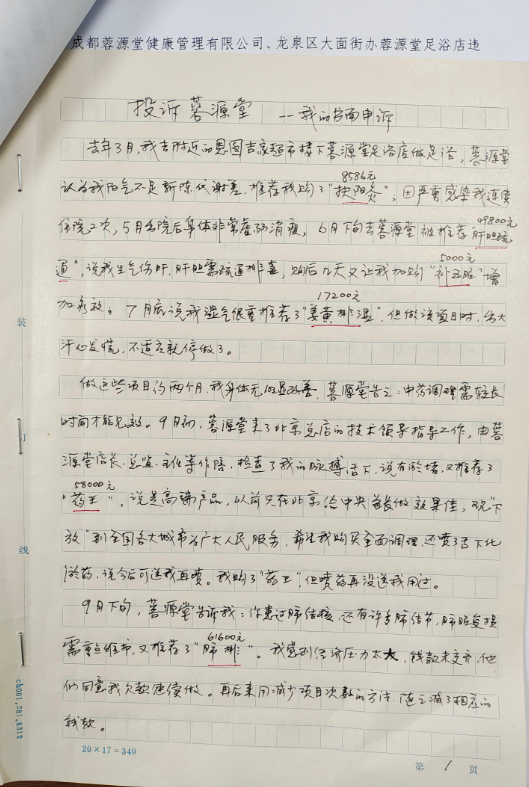 成都蓉源堂健康管理有限公司、龙泉区大面街办蓉源堂足浴店违
投诉蓉源堂 ——我的书面申诉
去年3月,我去附近的恩围吉家超市楼下蓉源堂足浴店做足浴,蓉源堂
8586元
认为我阳气不足新陈代谢差,推荐我购了"扶阳灸",因严重感染我连续
住院2次,5月出院后身体非常虚弱消瘦,6月下旬去蓉源堂被推荐肝胆疏
49800元
通",说我生气伤肝,肝胆需疏通排毒,购后几天又让我加购"补五脏"增
5000元
加免疫。7月底说我湿气很重推荐了"姜黄排湿",但做该项目时,出大
17200元
汗心发慌,不适应就停做了。
做这些项目约两个月,我身体无明显改善,蓉源堂告之:中药调理需较长
时间才能见效。9月初,蓉源堂来了北京总店的技术领导指导工作,由蓉
源堂店长、总监、主任等作陪,检查了我的脉搏舌下,说有淤堵,又推荐了
58000元
"药王",说是高端产品,以前只在北京给中央首长做效果佳,现"下
放"到全国各大城市为广大人民服务,希望我购买全面调理,还喷了舌下化
淤药,说今后可送我再喷。我购了"药王",但喷药再没送我用过。
9月下旬,蓉源堂告诉我:你患过肺结核,还有许多肺结节,肺脏受损
61600元
需重点维护,又推荐了"肺排"。我感到经济压力太大,钱款未交齐,他
们同意我欠款继续做。再后来用减少项目次数的方法,随之减了相应的
钱款。
装
订
线
cb001.281.8312
20×17=340
第 1 页